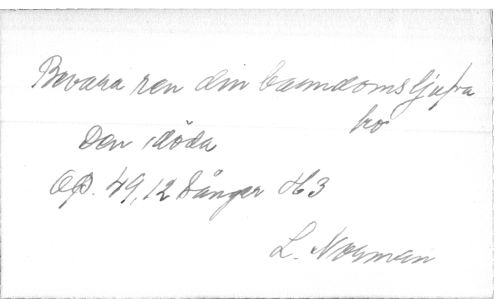 Bevara ren din barndoms ljufva
tro
Den döda
Op. 49, 12 Sånger H3
L. Norman